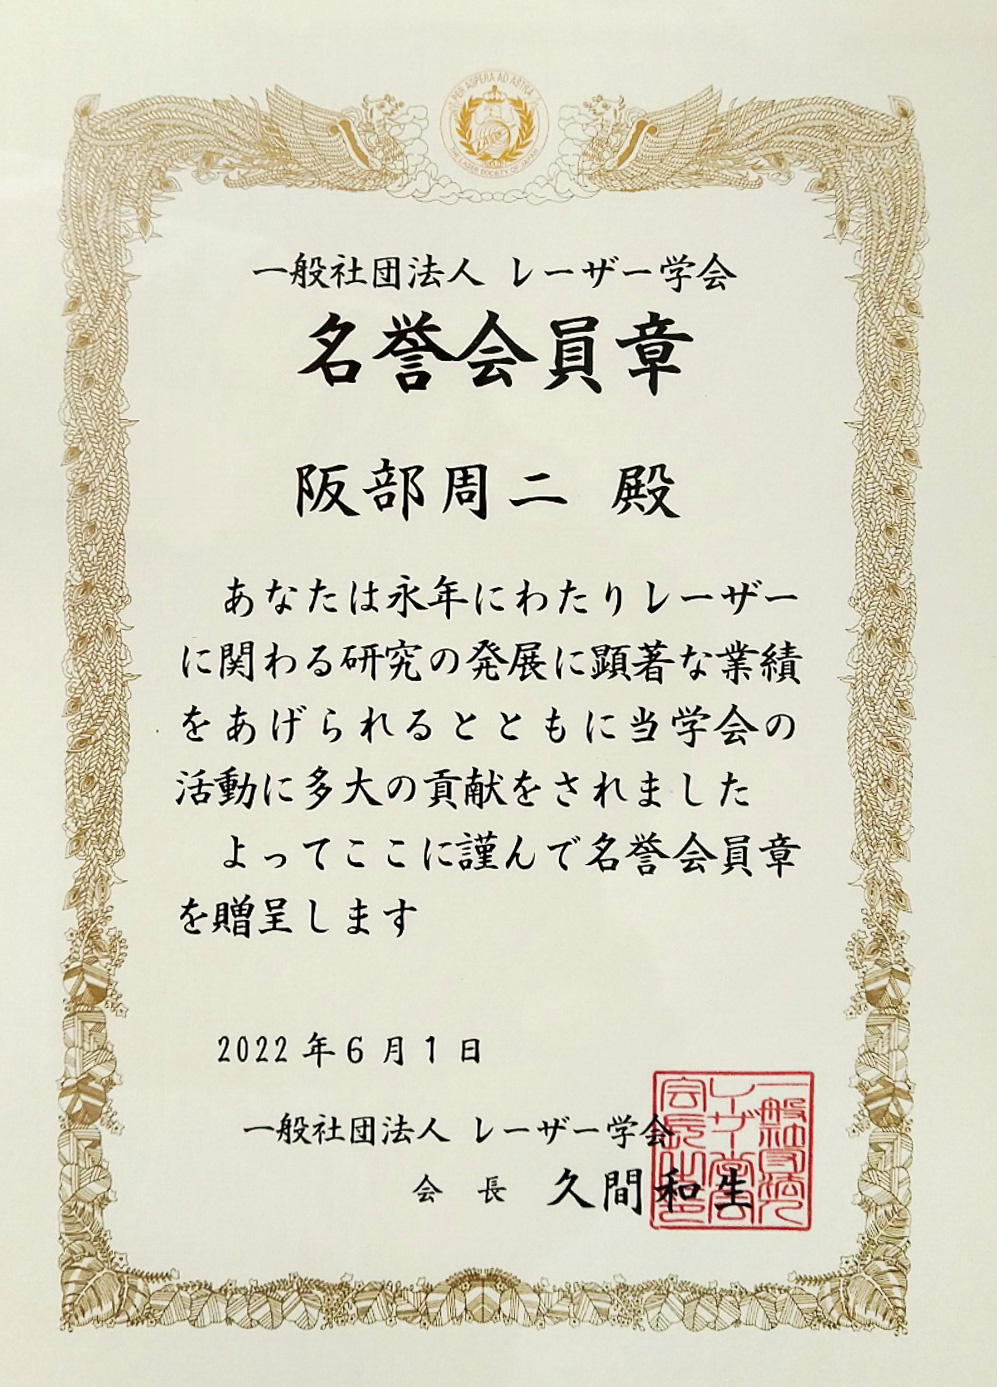 PER ASPERA AD ASTRA
THE LASER SOCIETY OF JAPAN
一般社団法人 レーザー学会
名誉会員章
阪部周二 殿
あなたは永年にわたりレーザー
に関わる研究の発展に顕著な業績
をあげられるとともに当学会の
活動に多大の貢献をされました
よってここに謹んで名誉会員章
を贈呈します
2022年6月1日
一般社団法人 レーザー学会
会 長 久間和生
一般社団法人
レーザー学会
会長之印